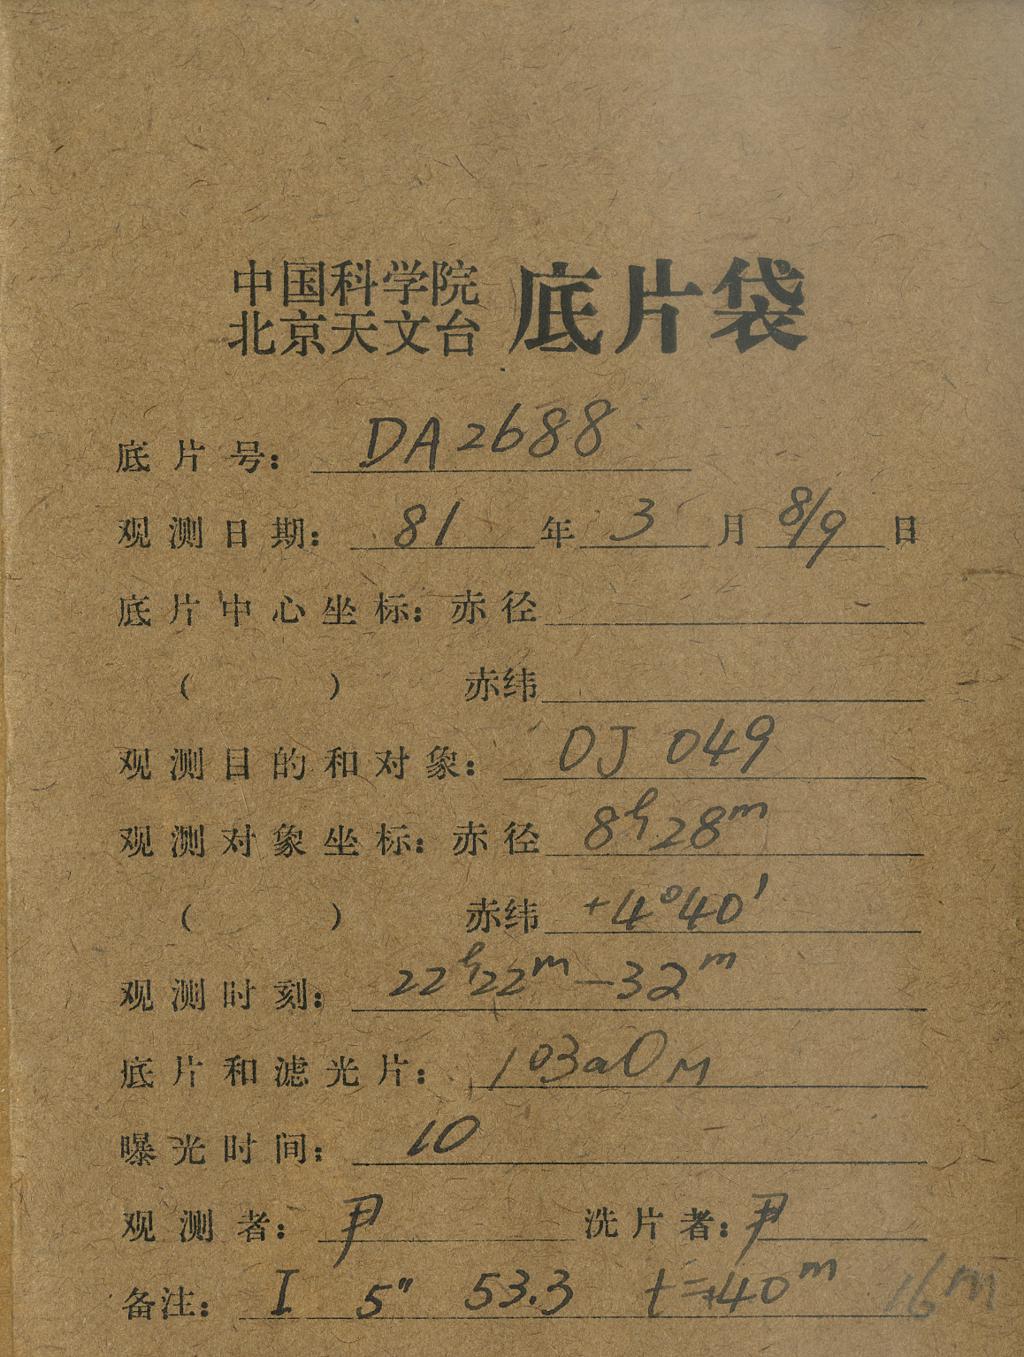 中国科学院
北京天文台
底片袋
底片号: DA2688
观测日期: 81 年 3 月 8/9 日
底片中心坐标: 赤径
( ) 赤纬
观测目的和对象: OJ 049
观测对象坐标: 赤径 8h28m
( ) 赤纬 +4°40'
观测时刻: 22h22m—32m
底片和滤光片: 103aO M
曝光时间: 10
观测者: 尹 洗片者: 尹
备注: I 5" 53.3 t=+40m 16m